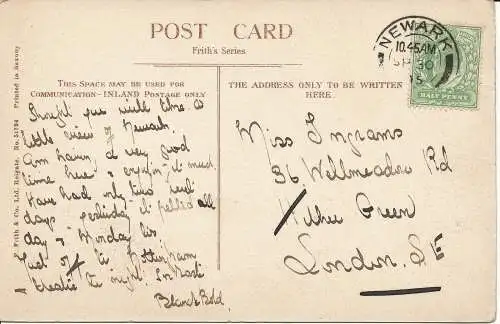 POST CARD
Frith's Series
THIS SPACE MAY BE USED FOR
COMMUNICATION—INLAND POSTAGE ONLY
THE ADDRESS ONLY TO BE WRITTEN
HERE.
NEWARK
10.45AM
SP 30
15
HALF PENNY
F. Frith & Co., Ltd. Reigate. No. 51724 Printed in Saxony
Thought you would like a
little view Newark.
Am having a very good
time here & enjoying it much.
Have had only two
days yesterday it pelled all
day & Monday
to Nottingham
theatre to night.
Miss Ingrams
36 Wellmeadow Rd
Hither Green
London. SE